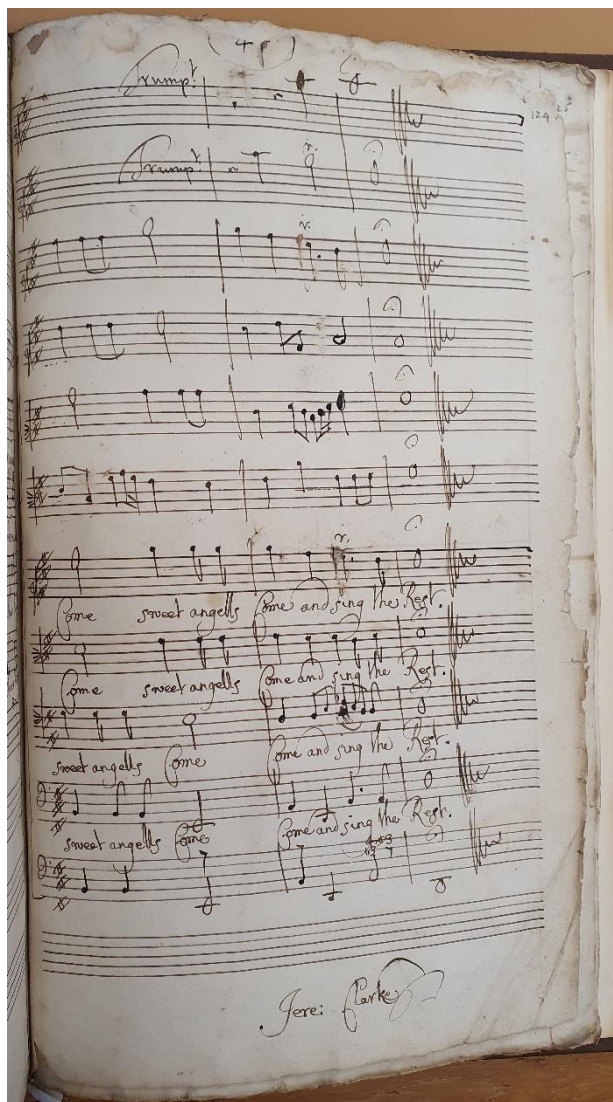 (41)
Trumpt.
124 25
Trumpt.
Come sweet angells Come and sing the Rest.
Come sweet angells Come and sing the Rest.
sweet angells Come Come and sing the Rest.
sweet angells Come Come and sing the Rest.
Jere: Clarke